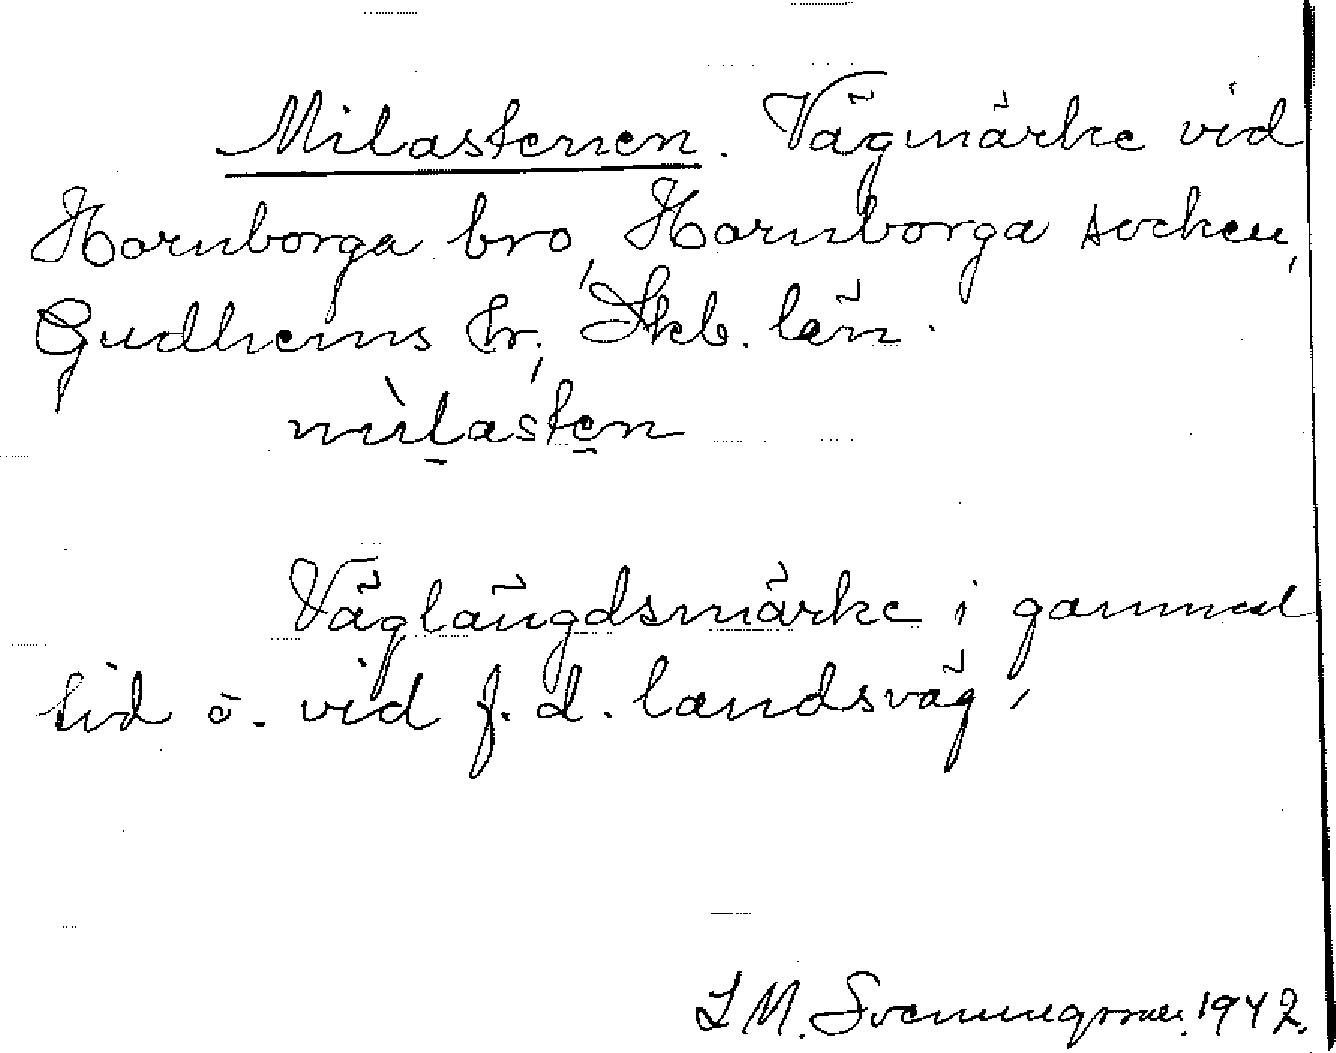 Milastenen. Vägmärke vid
Hornborga bro, Hornborga socken,
Gudhems hr, Skb. län.
mìlastən
Väglängdsmärke i gammal
tid ö. vid f. d. landsväg.
1942.